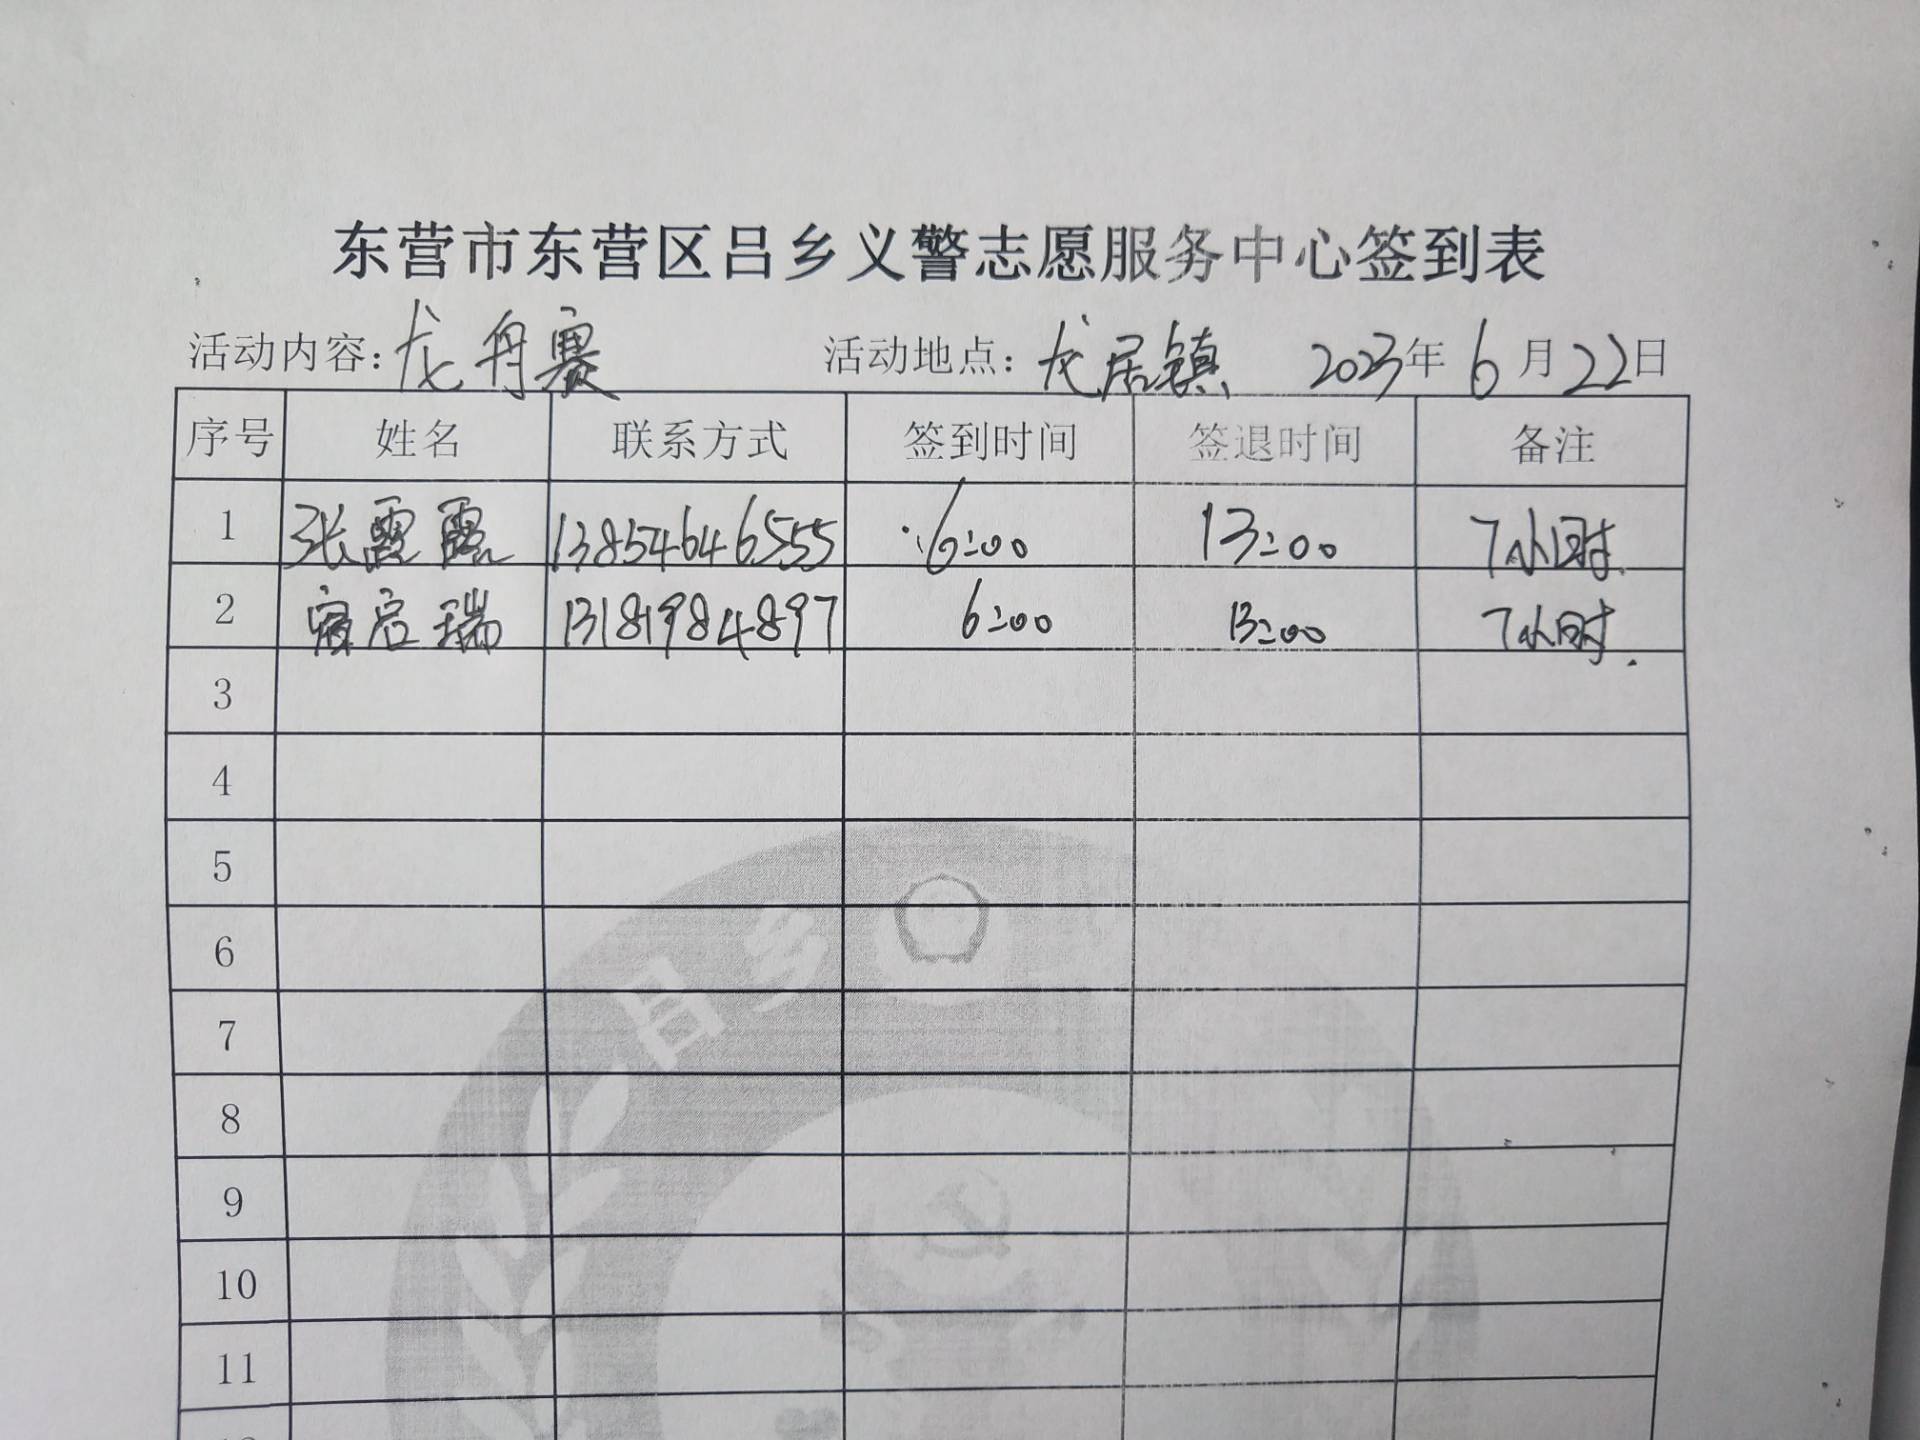 东营市东营区吕乡义警志愿服务中心签到表
活动内容：龙舟赛 活动地点：龙居镇 2023年6月22日
序号 姓名 联系方式 签到时间 签退时间 备注
1 张霞霞 13854646555 6:00 13:00 7小时
2 启瑞 13181984897 6:00 13:00 7小时.
3
4
5
6
7
8
9
10
11
吕乡